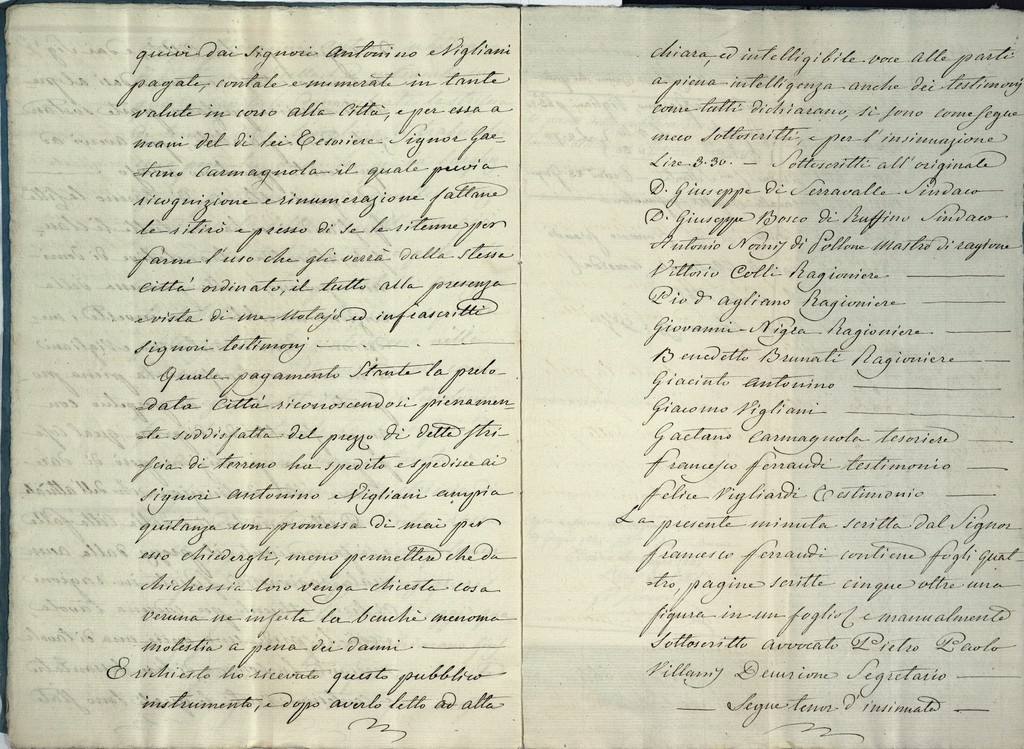 quivi dai Signori Antonino e Vigliani
pagate, contate e numerate in tante
valute in corso alla Città, e per essa a
mani del di lei Tesoriere Signor Gae-
tano Carmagnola il quale previa
ricognizione e rinumerazione fattane
le ritirò e presso di se le ritenne per
farne l'uso che gli verrà dalla stessa
Città ordinato, il tutto alla presenza
e vista di me Notajo ed infrascritti
Signori testimonj
Quale pagamento Stante la prelo-
data Città riconoscendosi pienamen-
te soddisfatta del prezzo di dette stri-
scia di terreno ha spedito e spedisce ai
Signori Antonino e Vigliani ampia
quitanza con promessa di mai per
esso chiedergli, meno permettere che da
chichessia loro venga chiesta cosa
veruna ne inferta la benchè menoma
molestia a pena dei danni
E richiesto ho ricevuto questo pubblico
instrumento, e dopo averlo letto ad alta
chiara, ed intelligibile voce alle parti
a piena intelligenza anche dei testimonj
come tutti dichiarano, si sono come segue
meco Sottoscritti, e per l'insinuazione
Lire 3.30. — Sottoscritti all'originale
D. Giuseppe di Serravalle Sindaco
D. Giuseppe Bosco di Ruffino Sindaco
Antonio Nomis di Pollone Mastro di ragione
Vittorio Colli Ragioniere
Pio d'agliano Ragioniere
Giovanni Nigra Ragioniere
Benedetto Brunati Ragioniere
Giacinto Antonino
Giacomo Vigliani
Gaetano Carmagnola tesoriere
Francesco Ferraudi testimonio
Felice Vigliardi Testimonio
La presente minuta scritta dal Signor
Francesco Ferraudi contiene fogli quat-
tro, pagine scritte cinque oltre una
figura in un foglio, e manualmente
Sottoscritto avvocato Pietro Paolo
Villanis Decurione Segretario
Segue tenor d'insinuato